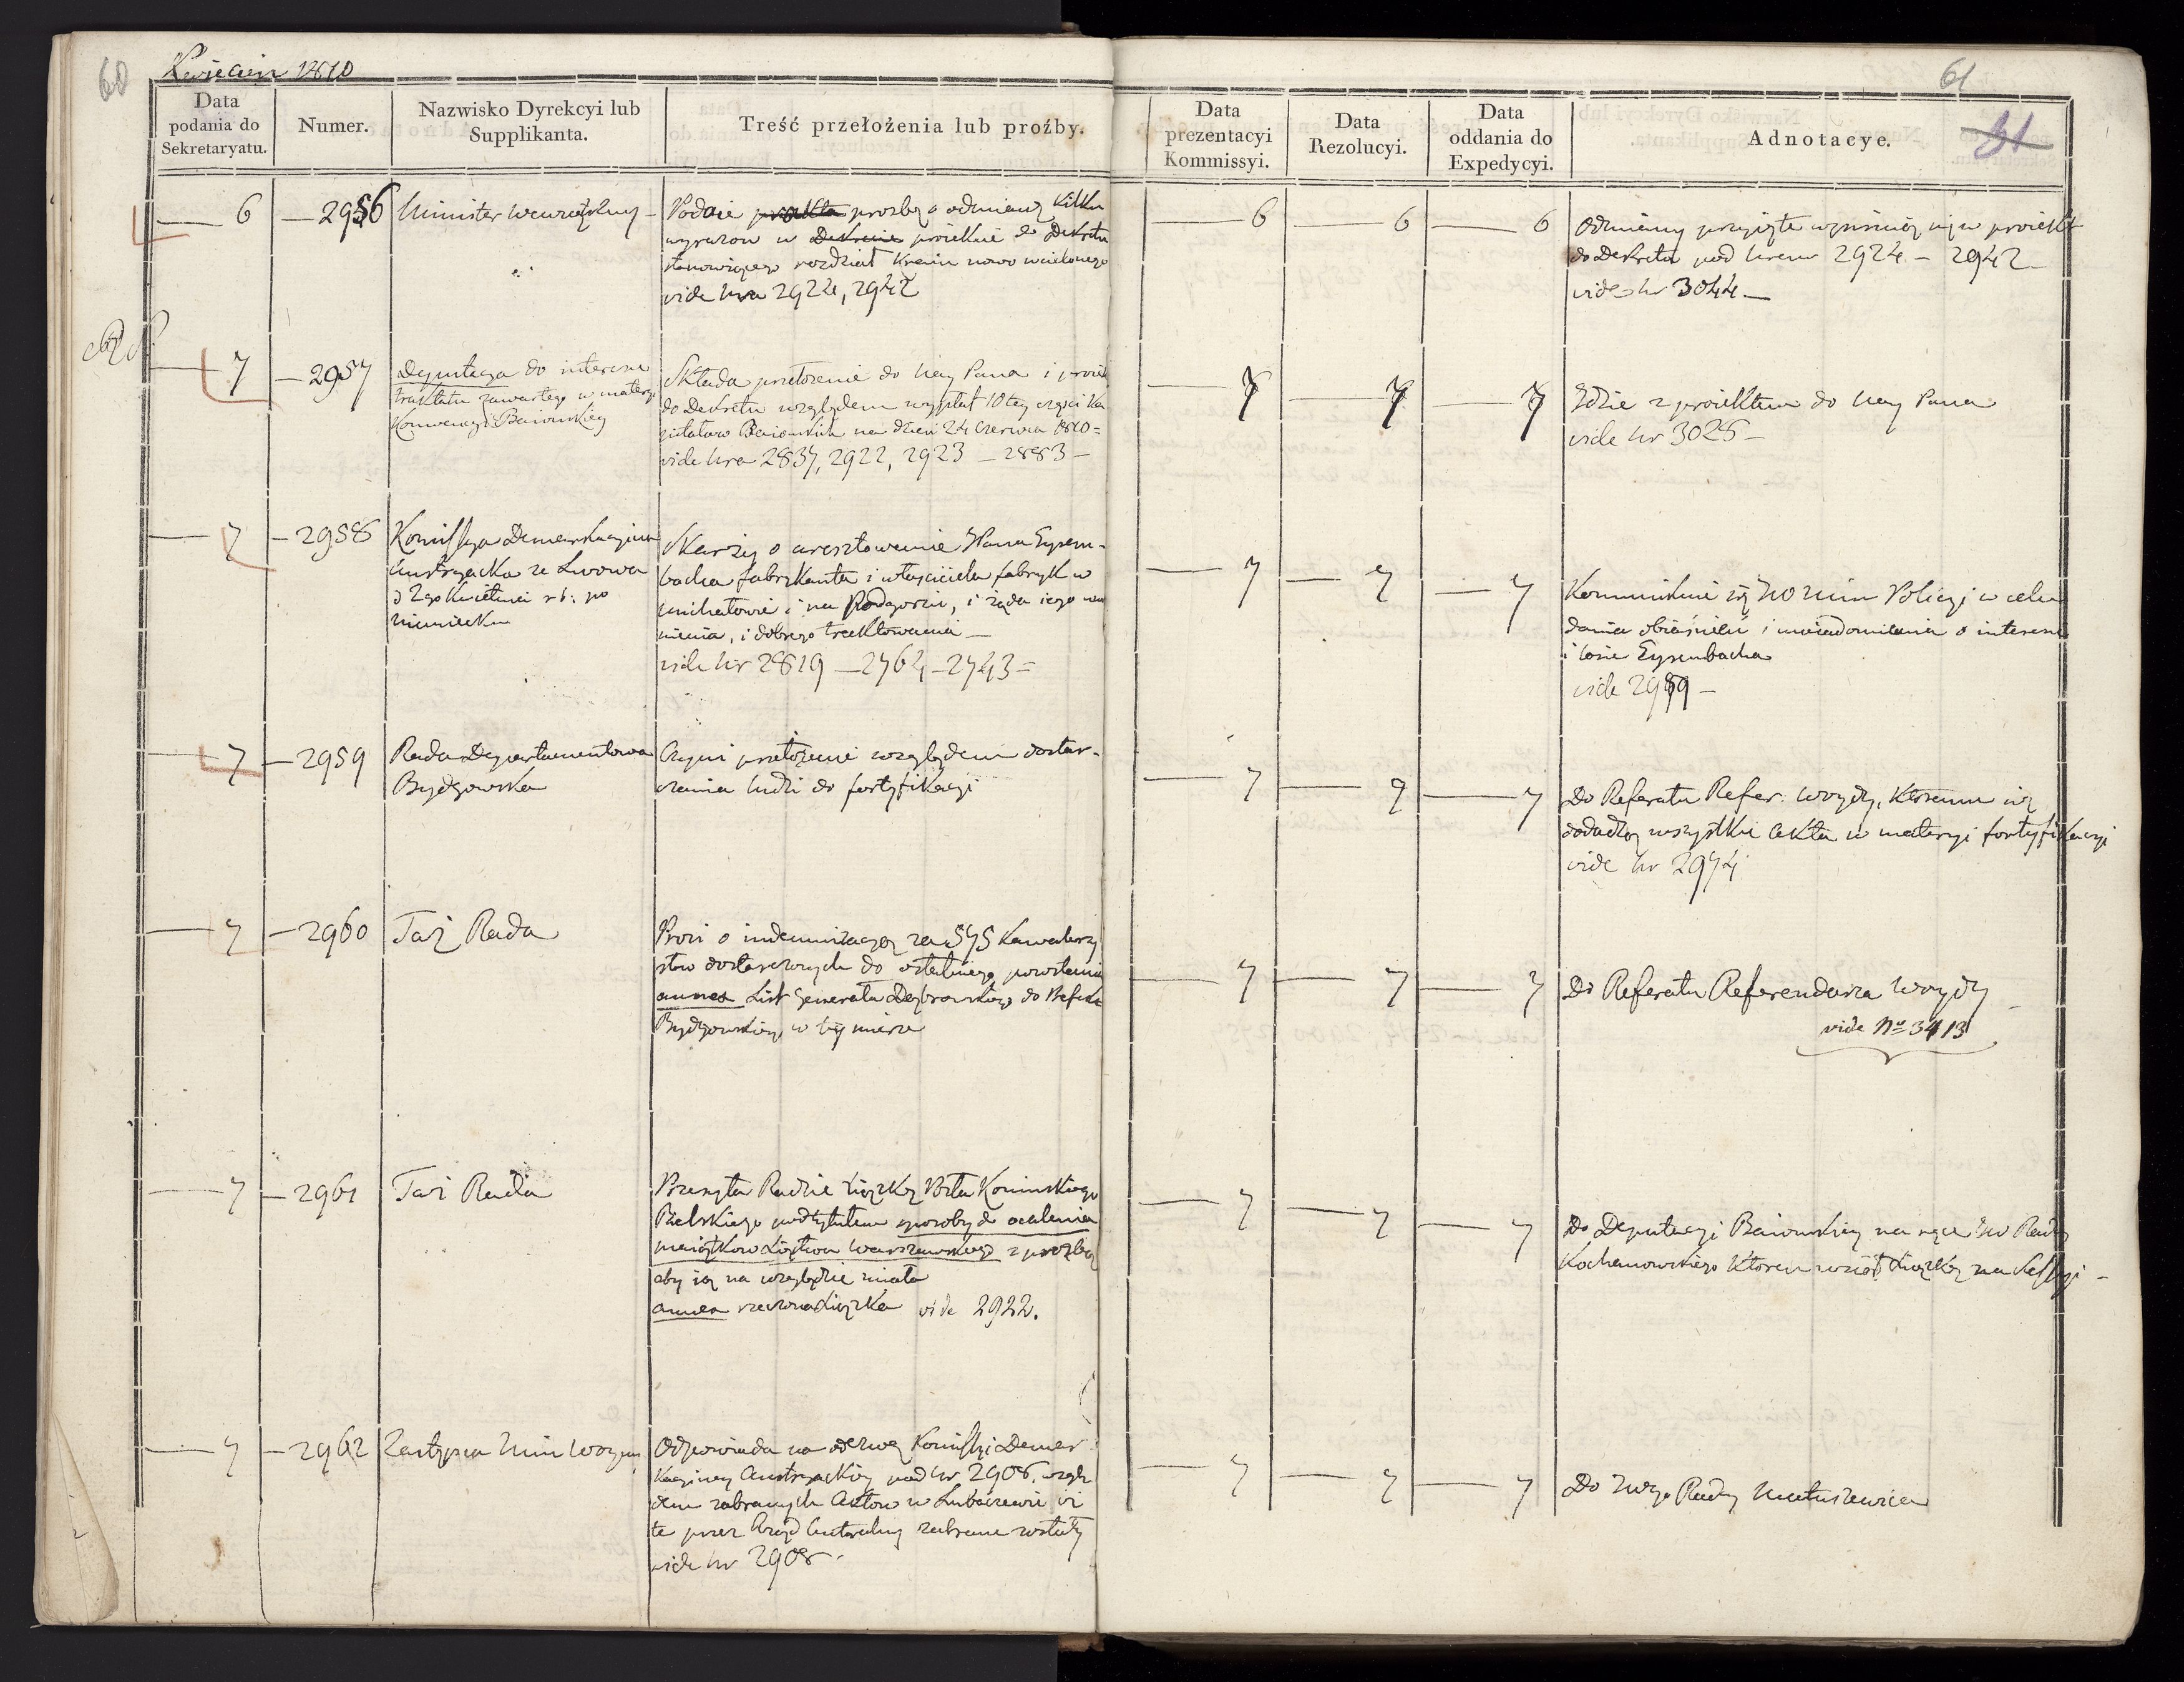 60
Kwiecień 1810
61
31
Data podania do Sekretaryatu.
Numer.
Nazwisko Dyrekcyi lub Supplikanta.
Treść przełożenia lub proźby.
Data prezentacyi Kommissyi.
Data Rezolucyi.
Data oddania do Expedycyi.
Adnotacye.
6
2956
Minister Wewnętrzny
Podaie prozbę o odmianę kilku
wyrazow w Dekrecie proiekcie do Dekretu
stanowiącego rozdział Kraiu nowo wcielonego
vide Nra 2924, 2942
6
6
6
Odmiany przyięte w proiekt
do Dekretu pod Nrem 2924 – 2942
vide Nr 3044 –
7
2957
Deputacya do interesu
traktatu zawartego w materyi
Konwencyi Baiońskiey
Składa przełożenie do Nay Pana i proiekt
do Dekretu względem wypłat 10tey części Ka
pitałow Baiońskich na dzień 24 Czerwca 1810 =
vide Nra 2837, 2922, 2923 – 2883 –
7
7
7
Idzie z proiektem do Nay Pana
vide Nr 3028 –
7
2958
Komissya Demarkacyina
Austryacka ze Lwowa
d 2go Kwietnia r b: po
niemiecku
Skarży o aresztowanie Pana Eysen-
bacha fabrykanta i właściciela fabryk w
i na Podgorzu, i żąda iego uwol
nienia, i dobrego traktowania –
vide Nr 2819 – 2764 – 2743 =
7
7
7
Kommunikuie się Min Policyi w celu
dania obiaśnień i uwiadomienia o interesie
i losie Eysenbacha
vide 2989 –
7
2959
Rada Departamentowa
Bydgowska
Czyni przełożenie względem dostar-
czenia ludzi do fortyfikacyi
7
7
7
Do Referatu Refer. Woydy, ktoremu się
dodadzą wszystkie akta w materyi fortyfikacyi
vide Nr 2974
7
2960
Taż Rada
Prosi o indemnizacyą za 575 kawalerzy
stow dostarczonych do ostatniego powstania
annex List Generała Dąbrowskiego do Prefekta
Bydgowskiego w tey mierze
7
7
7
Do Referatu Referendarza Woydy
vide No 3413
7
2961
Taż Rada
Przesyła Radzie książkę Posła Konińskiego
Bielskiego pod tytułem sposoby do ocalenia
maiątkow Xięstwa Warszawskiego z prozbą
aby ią na względzie miała
annex rzeczona książka vide 2922.
7
7
7
Do Deputacyi Baiońskiey na ręce JW Radcy
Kochanowskiego ktoren wziął książkę na Sessyi –
7
2962
Zastępca Min Woyny
Odpowiada na odezwę Komissyi Demar
kacyiney Austryackiey pod Nr 2908. wzglę
dem zabranych aktow w Lubaczewie iż
te przez Urząd Centralny zabrane zostały
vide Nr 2908 –
7
7
7
Do JWgo Radcy Matuszewica